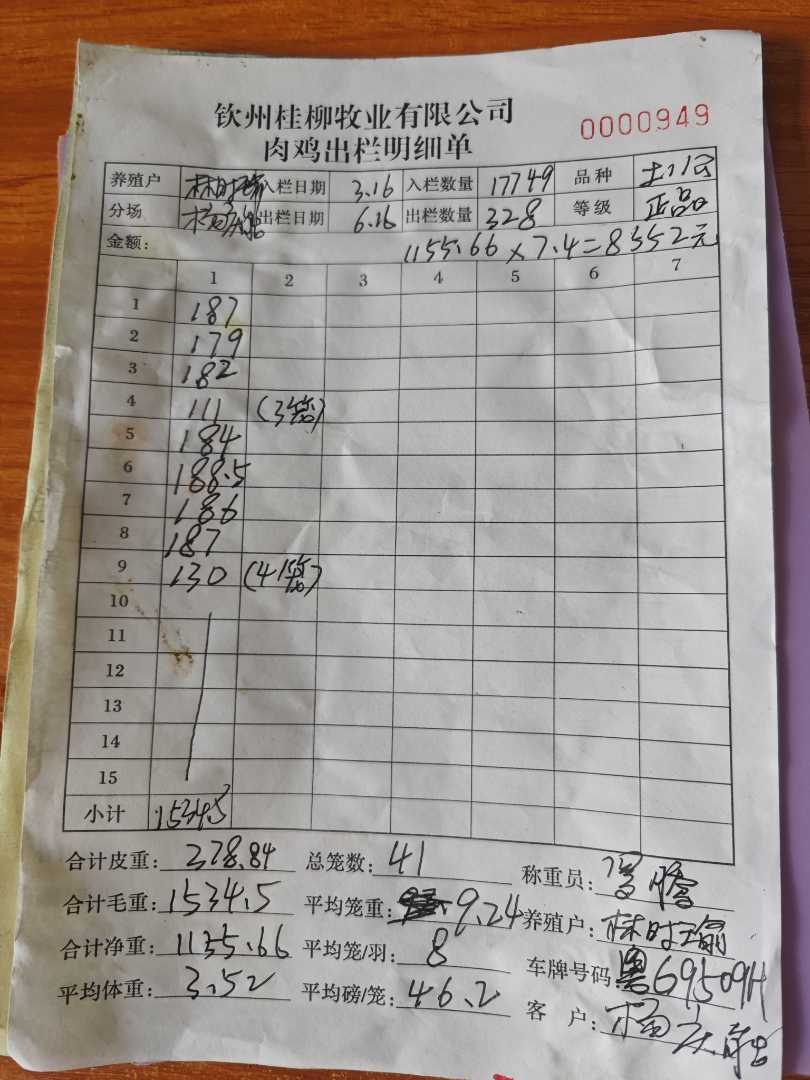 钦州桂柳牧业有限公司
肉鸡出栏明细单
0000949
养殖户 林时瑜 入栏日期 3.16 入栏数量 17749 品种
分场 出栏日期 6.16 出栏数量 328 等级 正品
金额: 1155.66×7.4=8552元
1 2 3 4 5 6 7
1 187
2 179
3 182
4 111 (3笼)
5 184
6 188.5
7 186
8 187
9 130 (4笼)
10
11
12
13
14
15
小计 1534.5
合计皮重: 378.84 总笼数: 41 称重员:
合计毛重: 1534.5 平均笼重: 9.24 养殖户: 林时瑜
合计净重: 1155.66 平均笼/羽: 8 车牌号码 粤69509H
平均体重: 3.52 平均磅/笼: 46.2 客户: 杨